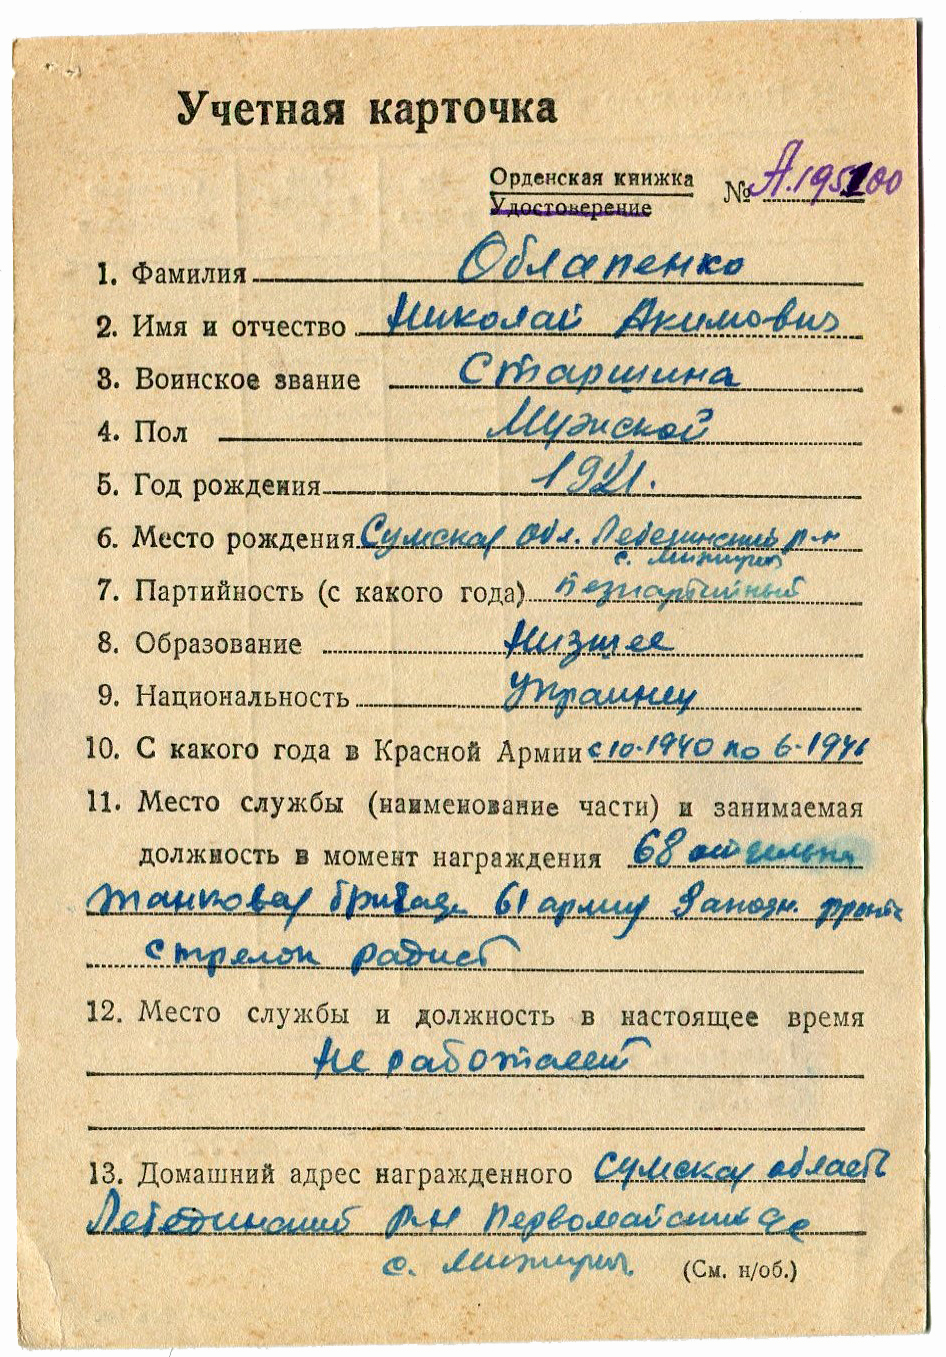 Учетная карточка
Орденская книжка № А.195100
Удостоверение
1. Фамилия Облапенко
2. Имя и отчество Николай Акимович
3. Воинское звание Старшина
4. Пол Мужской
5. Год рождения 1921.
6. Место рождения Сумская обл. Лебединский р-н
с. Межирич
7. Партийность (с какого года) безпартийный
8. Образование Низшее
9. Национальность Украинец
10. С какого года в Красной Армии с 10-1940 по 6-1946
11. Место службы (наименование части) и занимаемая
должность в момент награждения 68 отдельная
танковая бригада 61 армии Западн. фронта
стрелок радист
12. Место службы и должность в настоящее время
Не работает
13. Домашний адрес награжденного Сумская область
Лебединский р-н Первомайский
с. Межирич.
(См. н/об.)